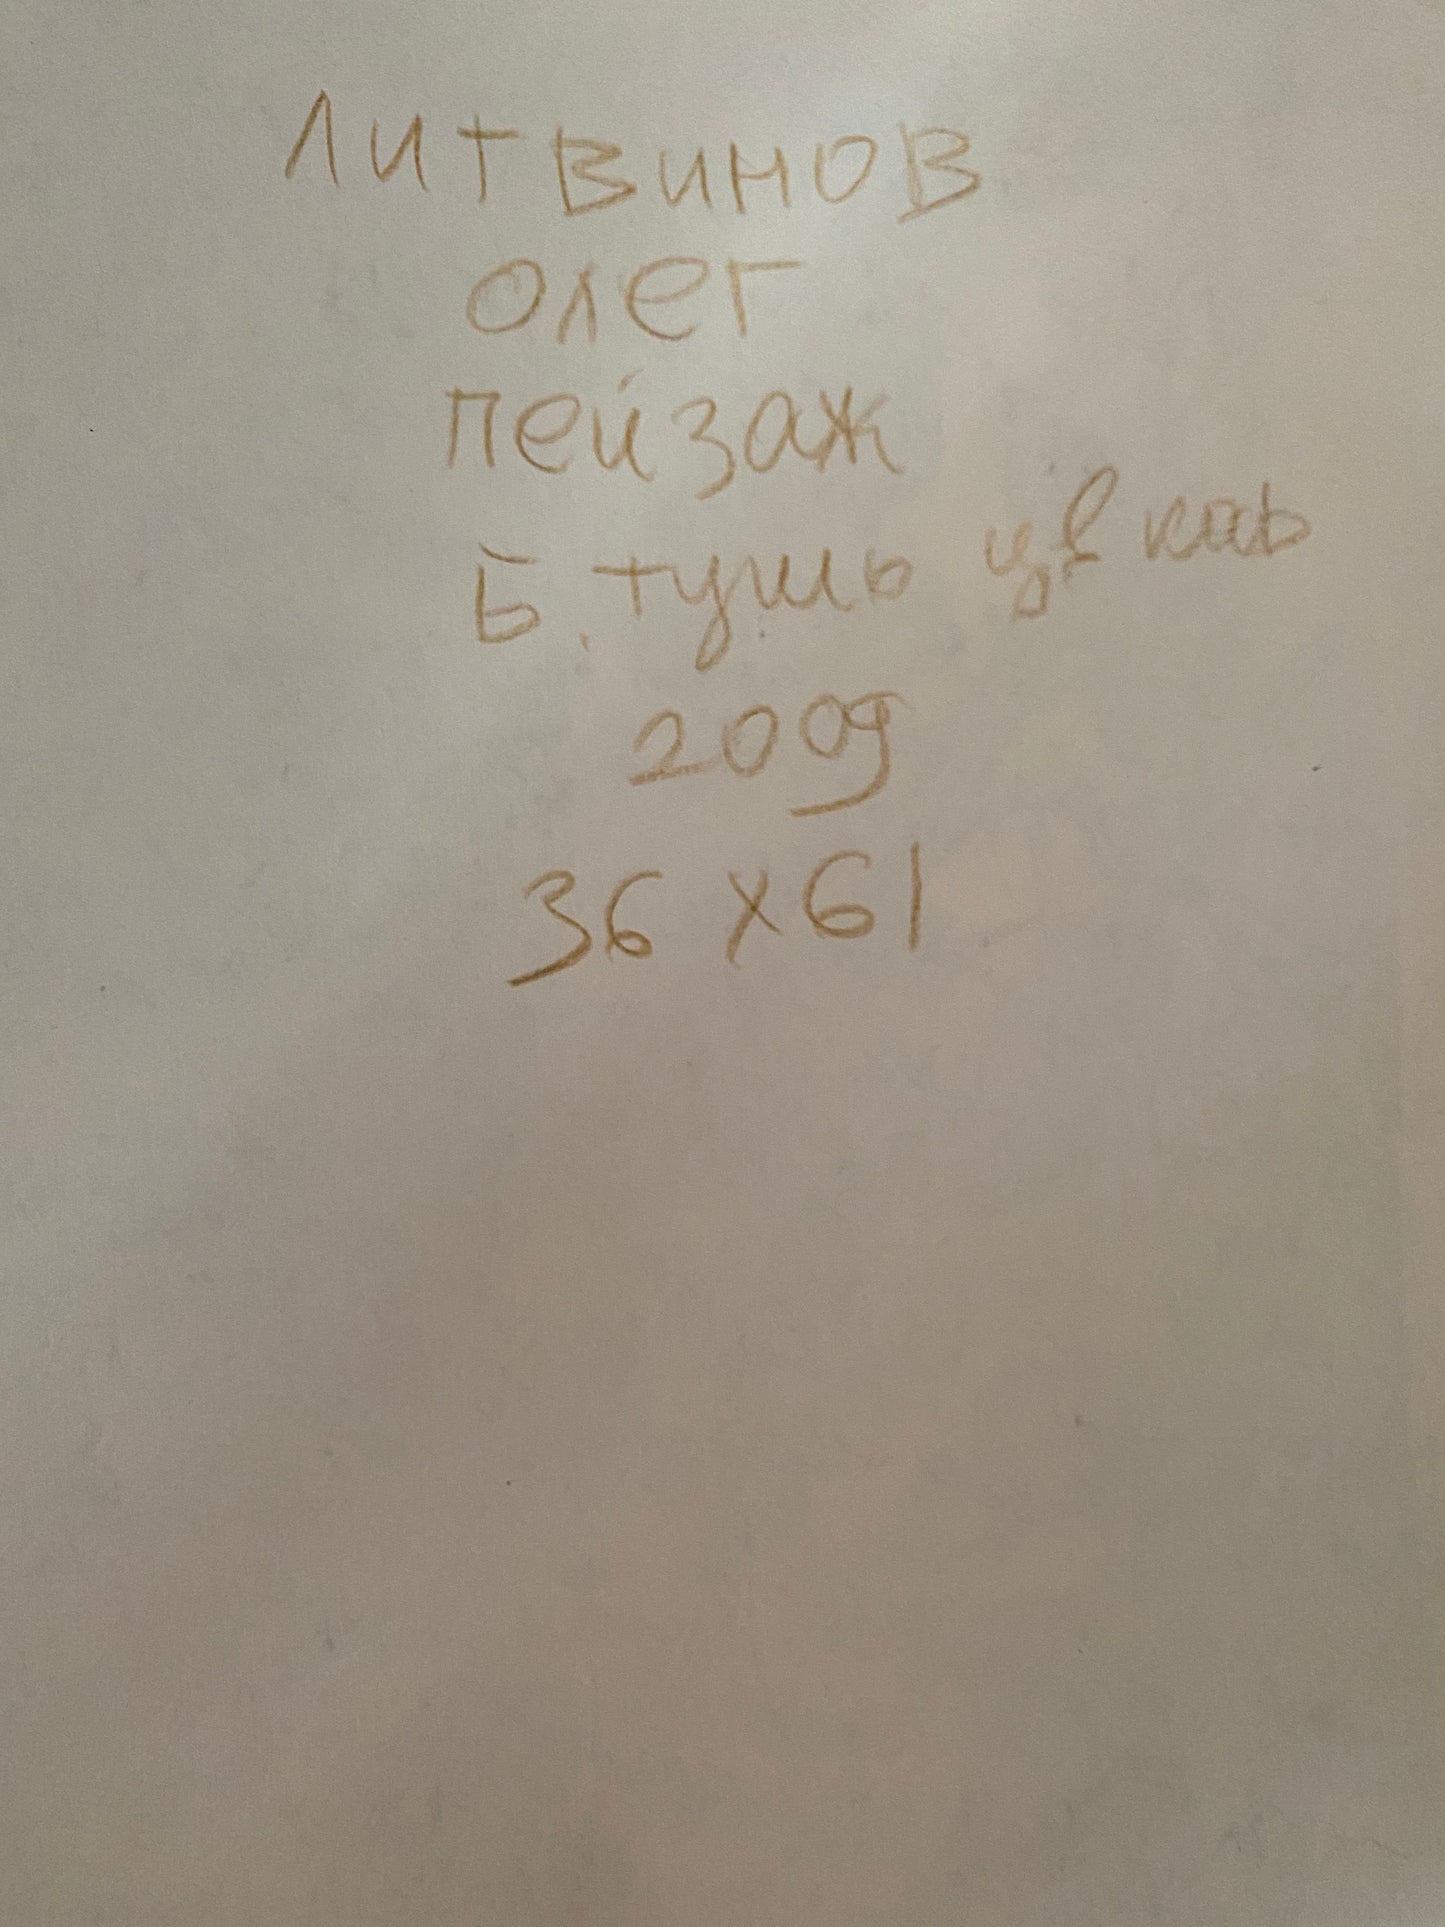 Литвинов
Олег
пейзаж
Б. тушь цв
2009
36 x 61